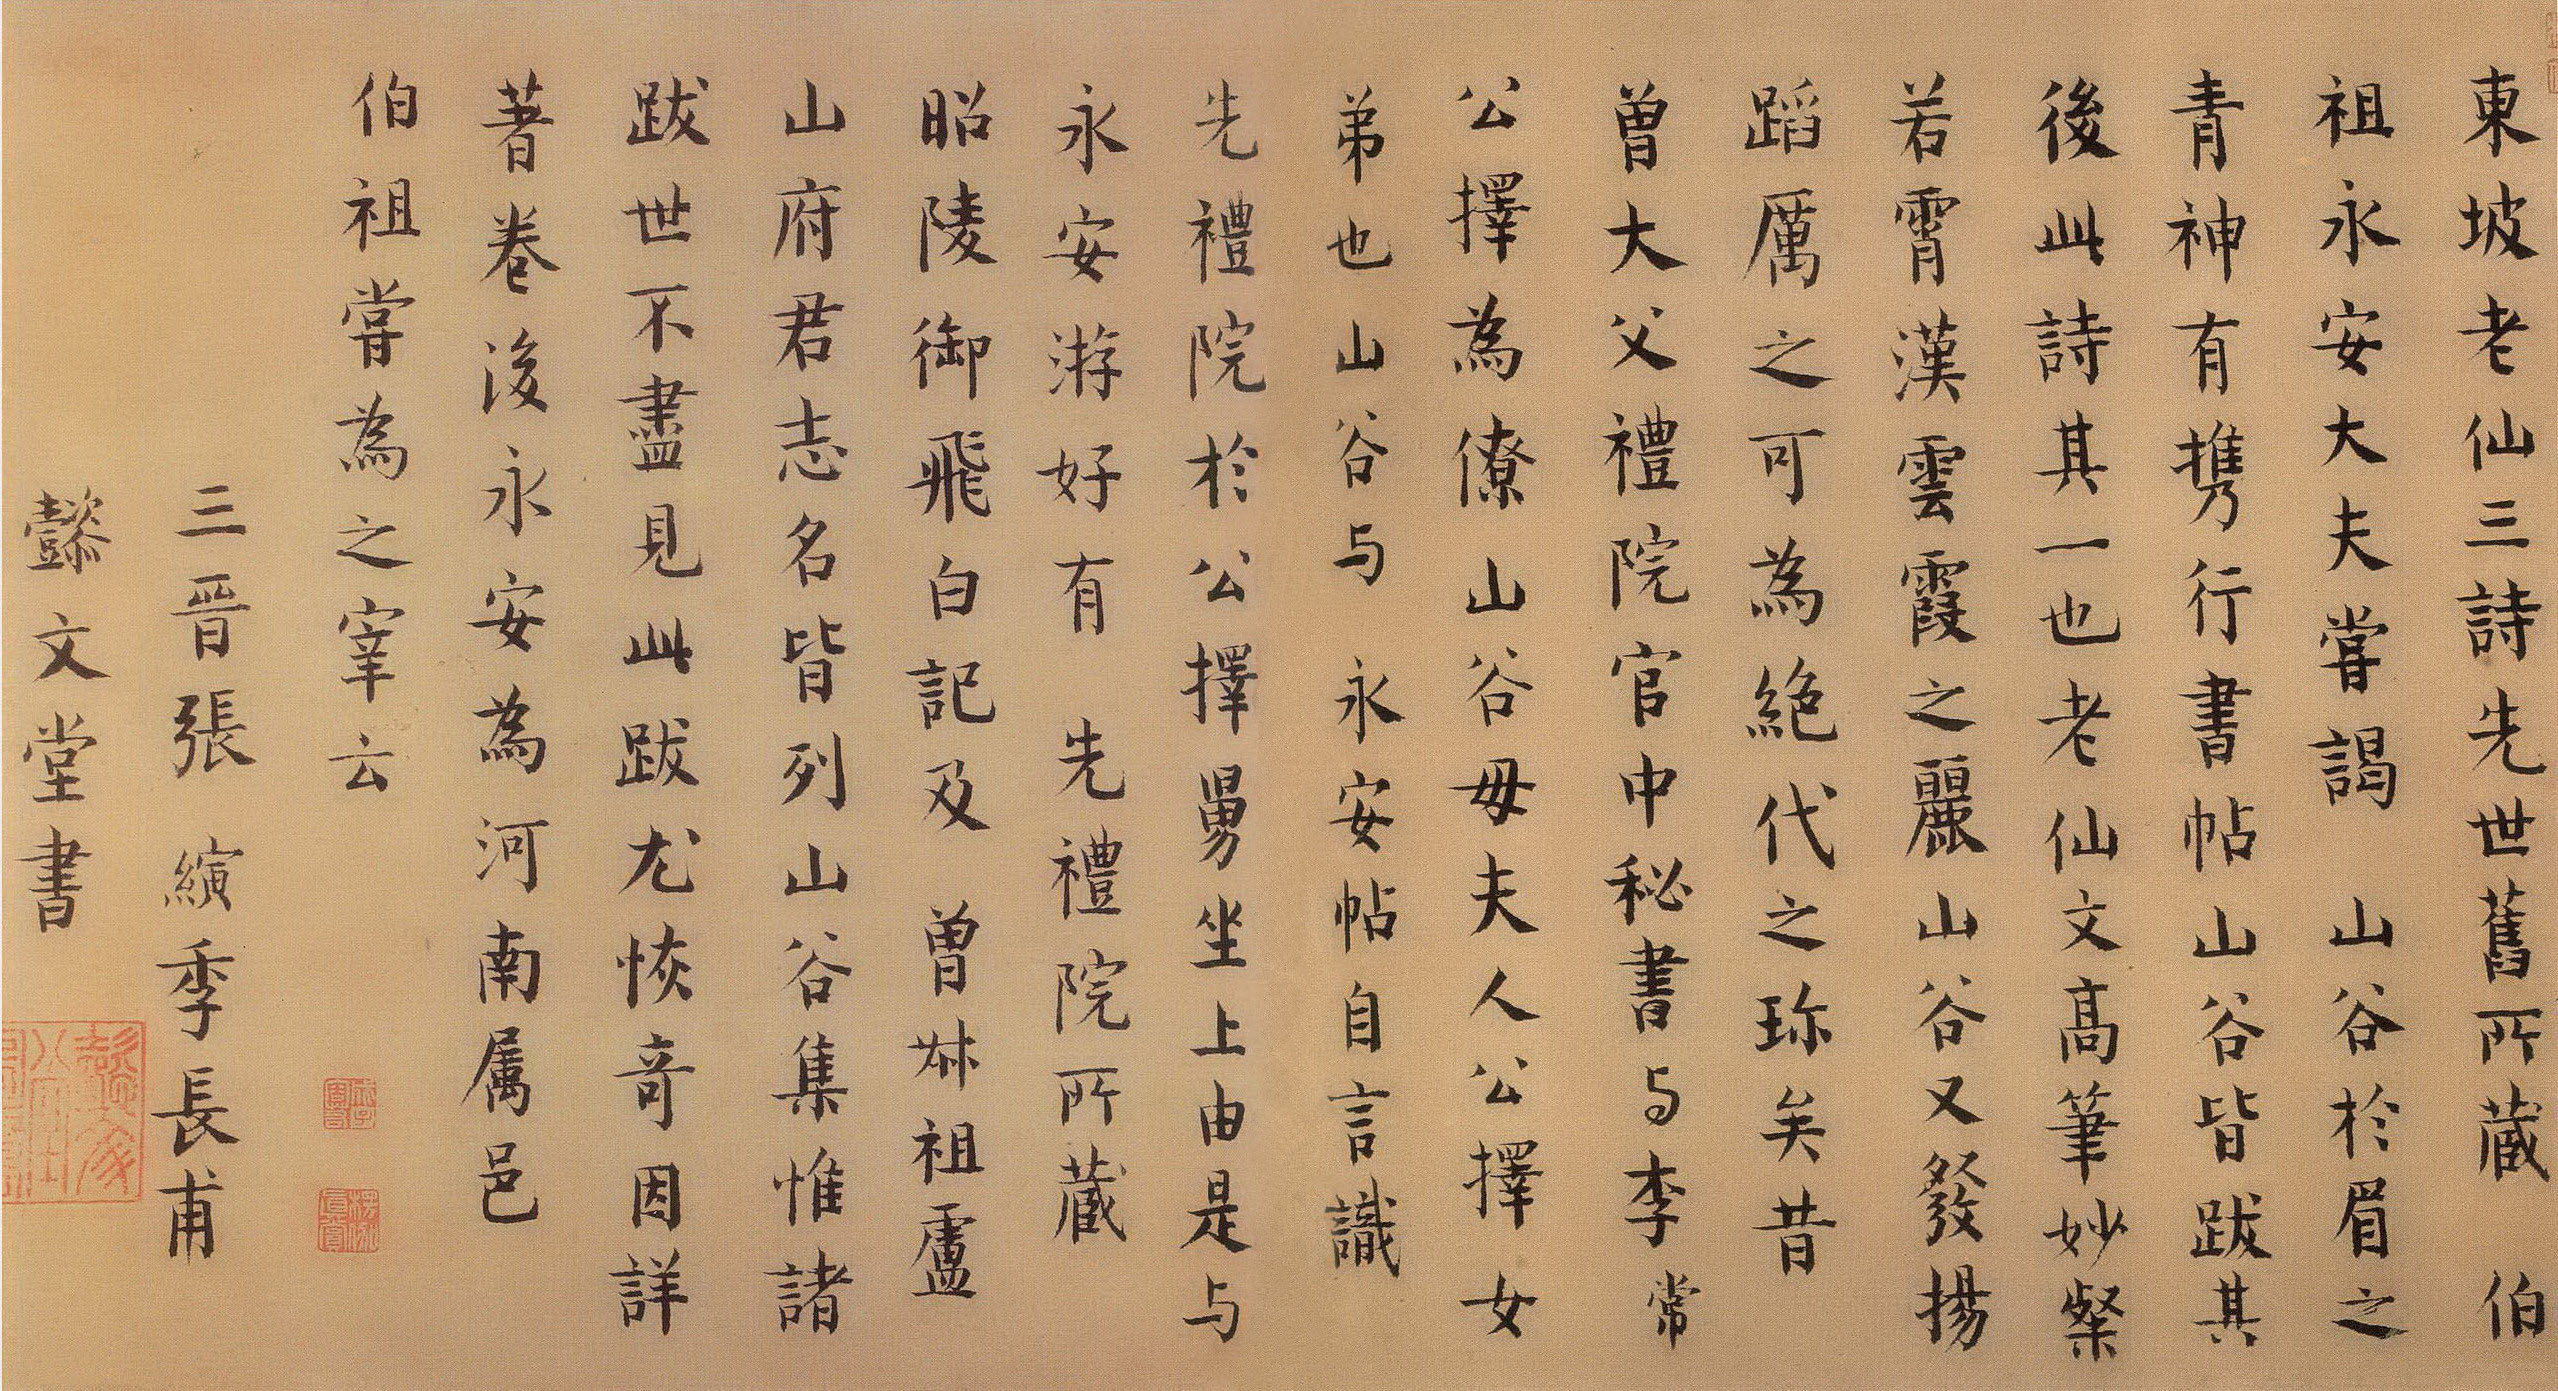 東坡老仙三詩先世舊所藏 伯
祖永安大夫嘗謁 山谷於眉之
青神有攜行書帖山谷皆跋其
後此詩其一也老仙文高筆妙粲
若霄漢雲霞之麗山谷又發揚
蹈厲之可為絕代之珎矣昔
曾大父禮院官中秘書与李常
公擇為僚山谷母夫人公擇女
弟也山谷与 永安帖自言識
先禮院於公擇舅坐上由是与
永安游好有 先禮院所藏
昭陵御飛白記及 曾叔祖盧
山府君志名皆列山谷集惟諸
跋世不盡見此跋尤恢奇因詳
著卷後永安為河南属邑
伯祖嘗為之宰云
三晋張 縯季長甫
懿文堂書